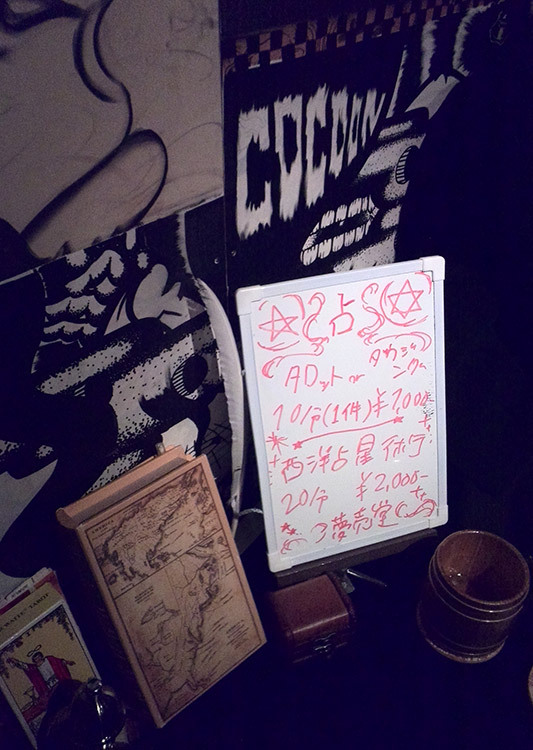 COCOON
占
タロット or ダウジング
10分(1件)¥1,000-
西洋占星術
20分 ¥2,000-
夢売堂
TAROT